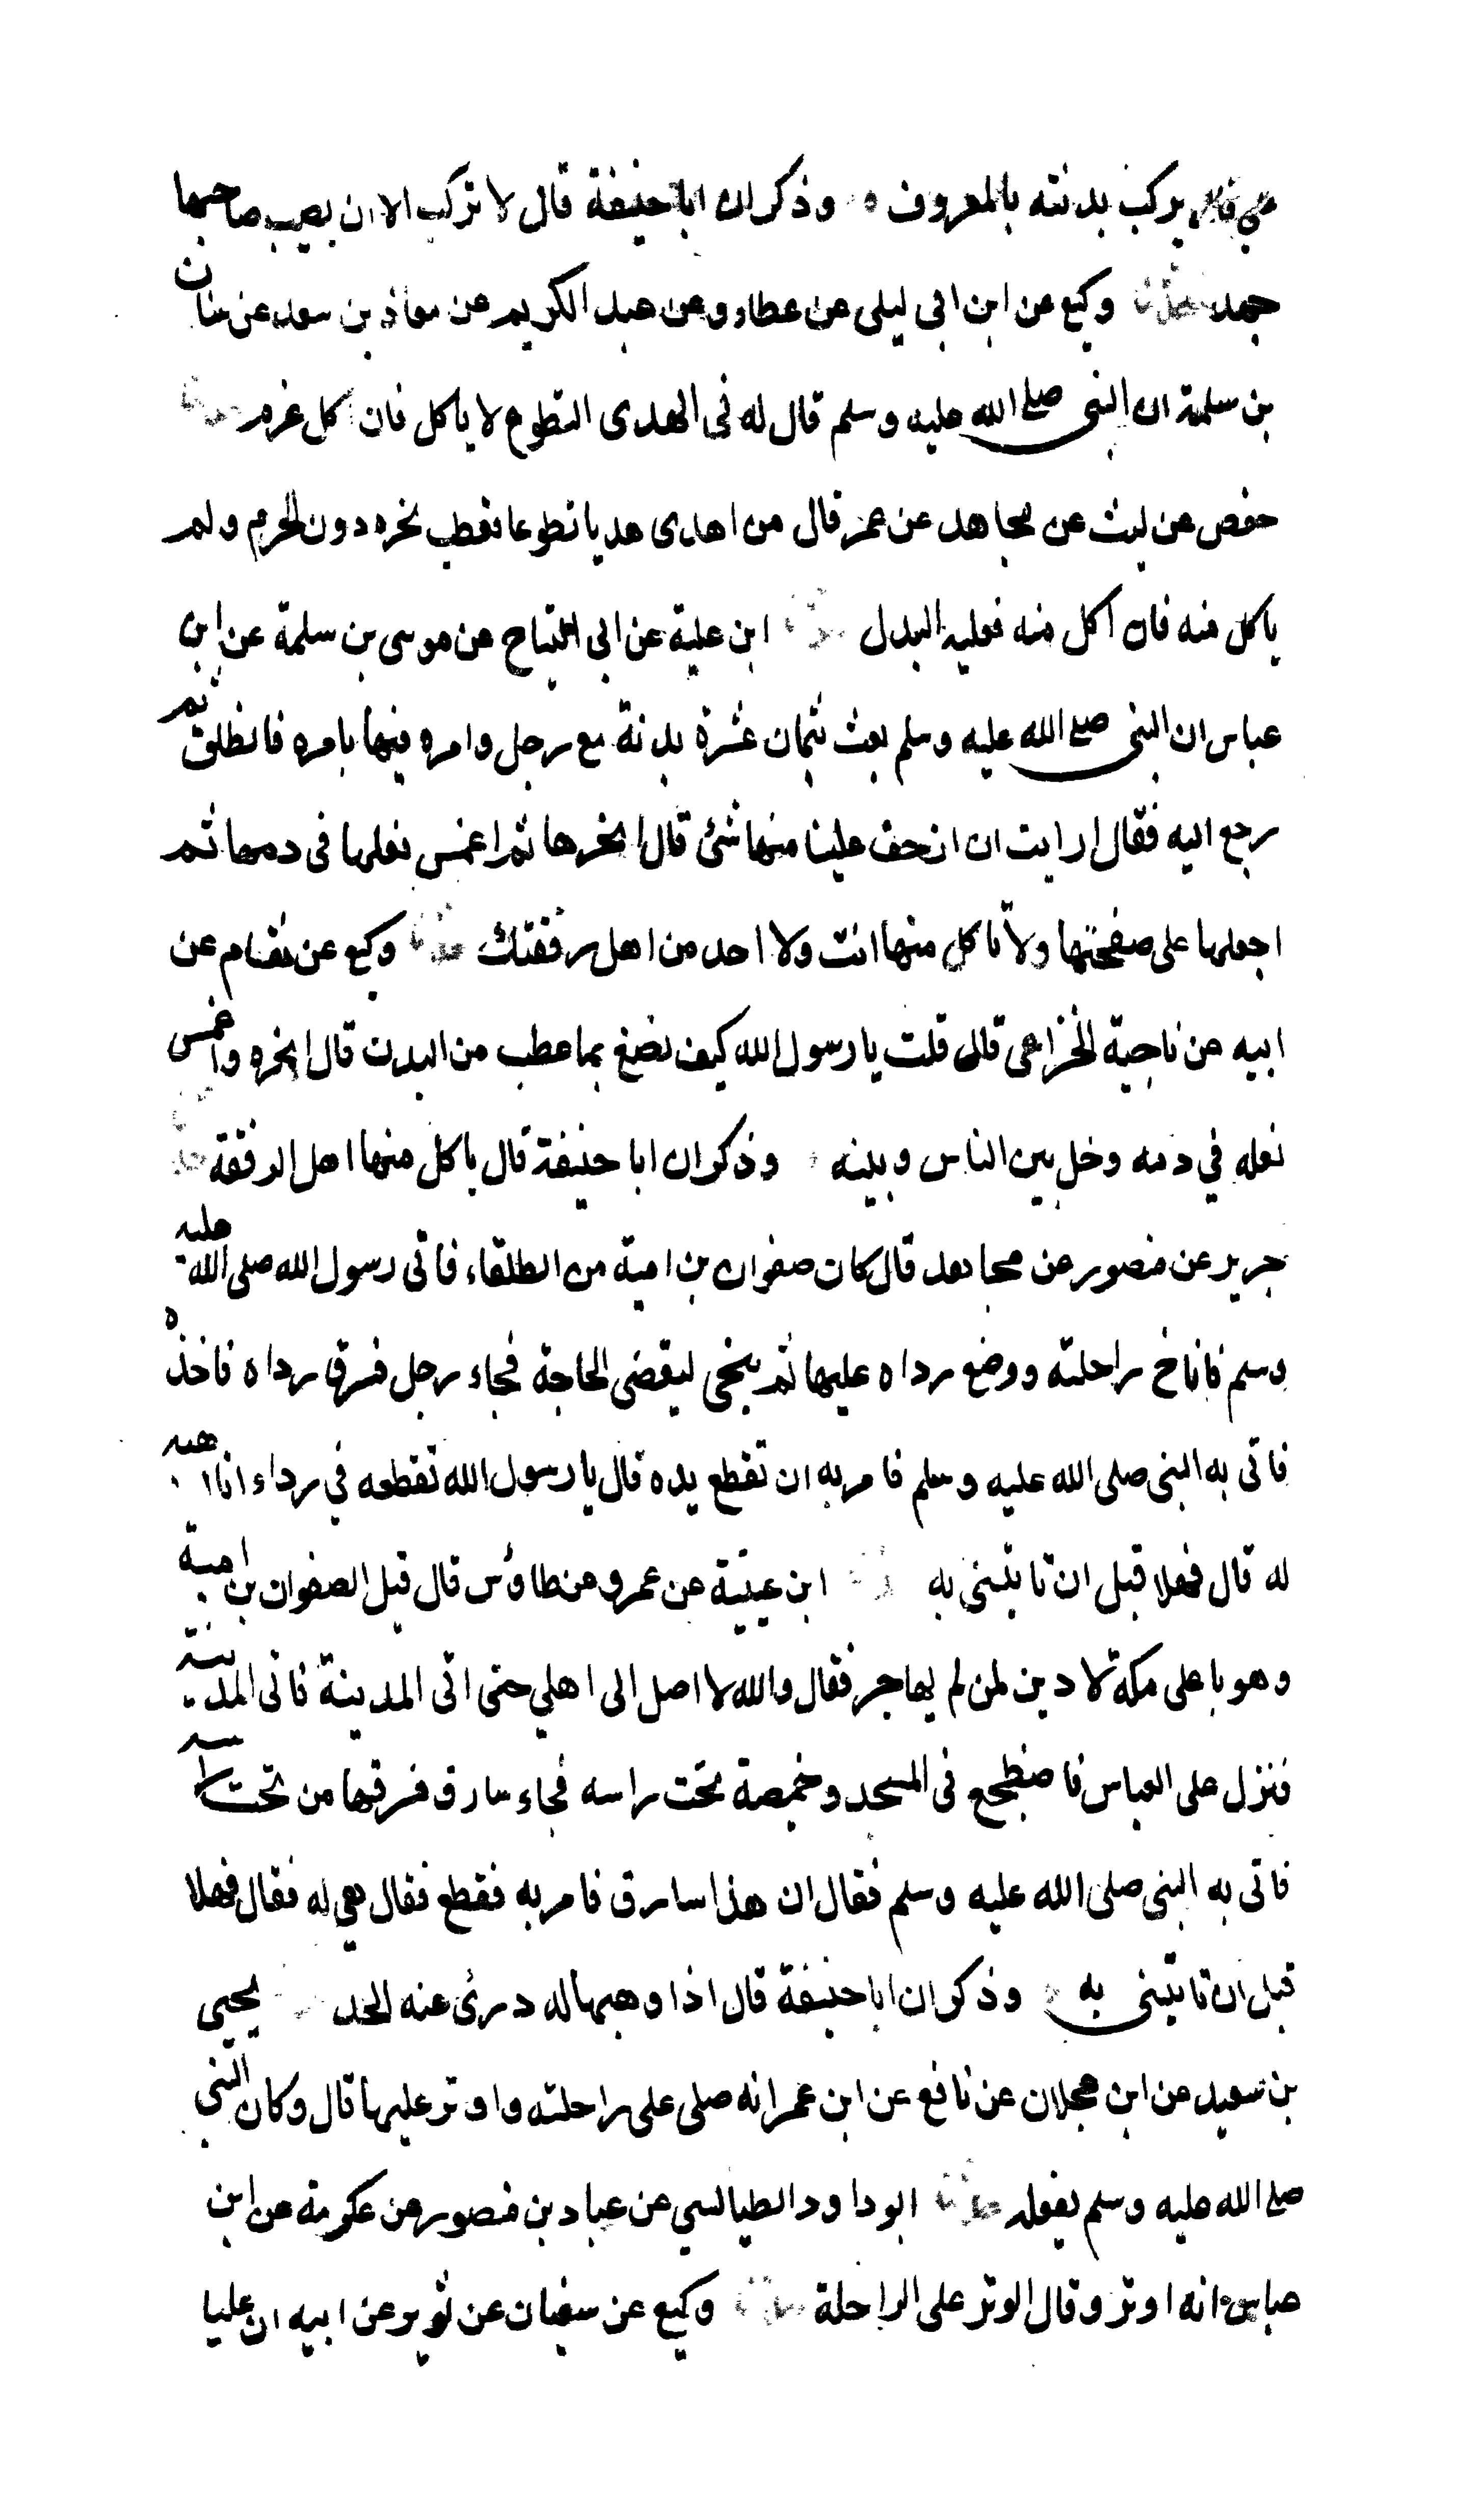 علي قال يركب بدنته بالمعروف ٥ وذكر ان ابا حنيفة قال لا تركب الا ان يصيب صاحبها
جهد حدثنا وكيع عن ابن ابي ليلى عن عطاء وعن عبد الكريم عن معاذ بن سعد عن سنان
بن سلمة ان النبي صلى الله عليه وسلم قال له في الهدى التطوع لا ياكل فان اكل غرم حدثنا
حفص عن ليث عن مجاهد عن عمر قال من اهدى هديا تطوعا فعطب نحره دون الحرم ولم
ياكل منه فان اكل منه فعليه البدل حدثنا ابن علية عن ابي التياح عن موسى بن سلمة عن ابن
عباس ان النبي صلى الله عليه وسلم بعث بثمان عشرة بدنة مع رجل وامره فيها بامره فانطلق ثم
رجع اليه فقال ارايت ان ازحف علينا منها شئ قال انحرها ثم اغمس نعلها في دمها ثم
اجعلها على صفحتها ولا تاكل منها انت ولا احد من اهل رفقتك حدثنا وكيع عن هشام عن
ابيه عن ناجية الخزاعي قال قلت يا رسول الله كيف نصنع بما عطب من البدن قال انحره واغمس
نعله في دمه وخل بين الناس وبينه وذكر ان ابا حنيفة قال ياكل منها اهل الرفقة حدثنا
جرير عن منصور عن مجاهد قال كان صفوان بن امية من الطلقاء فاتى رسول الله صلى الله عليه
وسلم فاناخ راحلته ووضع رداه عليها ثم تنحى ليقضى الحاجة فجاء رجل فسرق رداه فاخذه
فاتى به النبي صلى الله عليه وسلم فامر به ان تقطع يده قال يا رسول الله تقطعه في رداء انا اهبه
له قال فهلا قبل ان تاتيني به حدثنا ابن عيينة عن عمرو عن طاؤس قال قيل لصفوان بن امية
وهو باعلى مكة لا دين لمن لم يهاجر فقال والله لا اصل الى اهلي حتى اتى المدينة فاتى المدينة
فنزل على العباس فاضطجع في المسجد وخميصة تحت راسه فجاء سارق فسرقها من تحت راسه
فاتى به النبي صلى الله عليه وسلم فقال ان هذا سارق فامر به فقطع فقال هي له فقال فهلا
قبل ان تاتيني به وذكر ان ابا حنيفة قال اذا وهبها له درئ عنه الحد يحيى
بن سعيد عن ابن عجلان عن نافع عن ابن عمر انه صلى على راحلته واوتر عليها قال وكان النبي
صلى الله عليه وسلم يفعله حدثنا ابو داود الطيالسي عن عباد بن منصور عن عكرمة عن ابن
عباس انه اوتر وقال الوتر على الراحلة حدثنا وكيع عن سفيان عن ثوير عن ابيه ان عليا